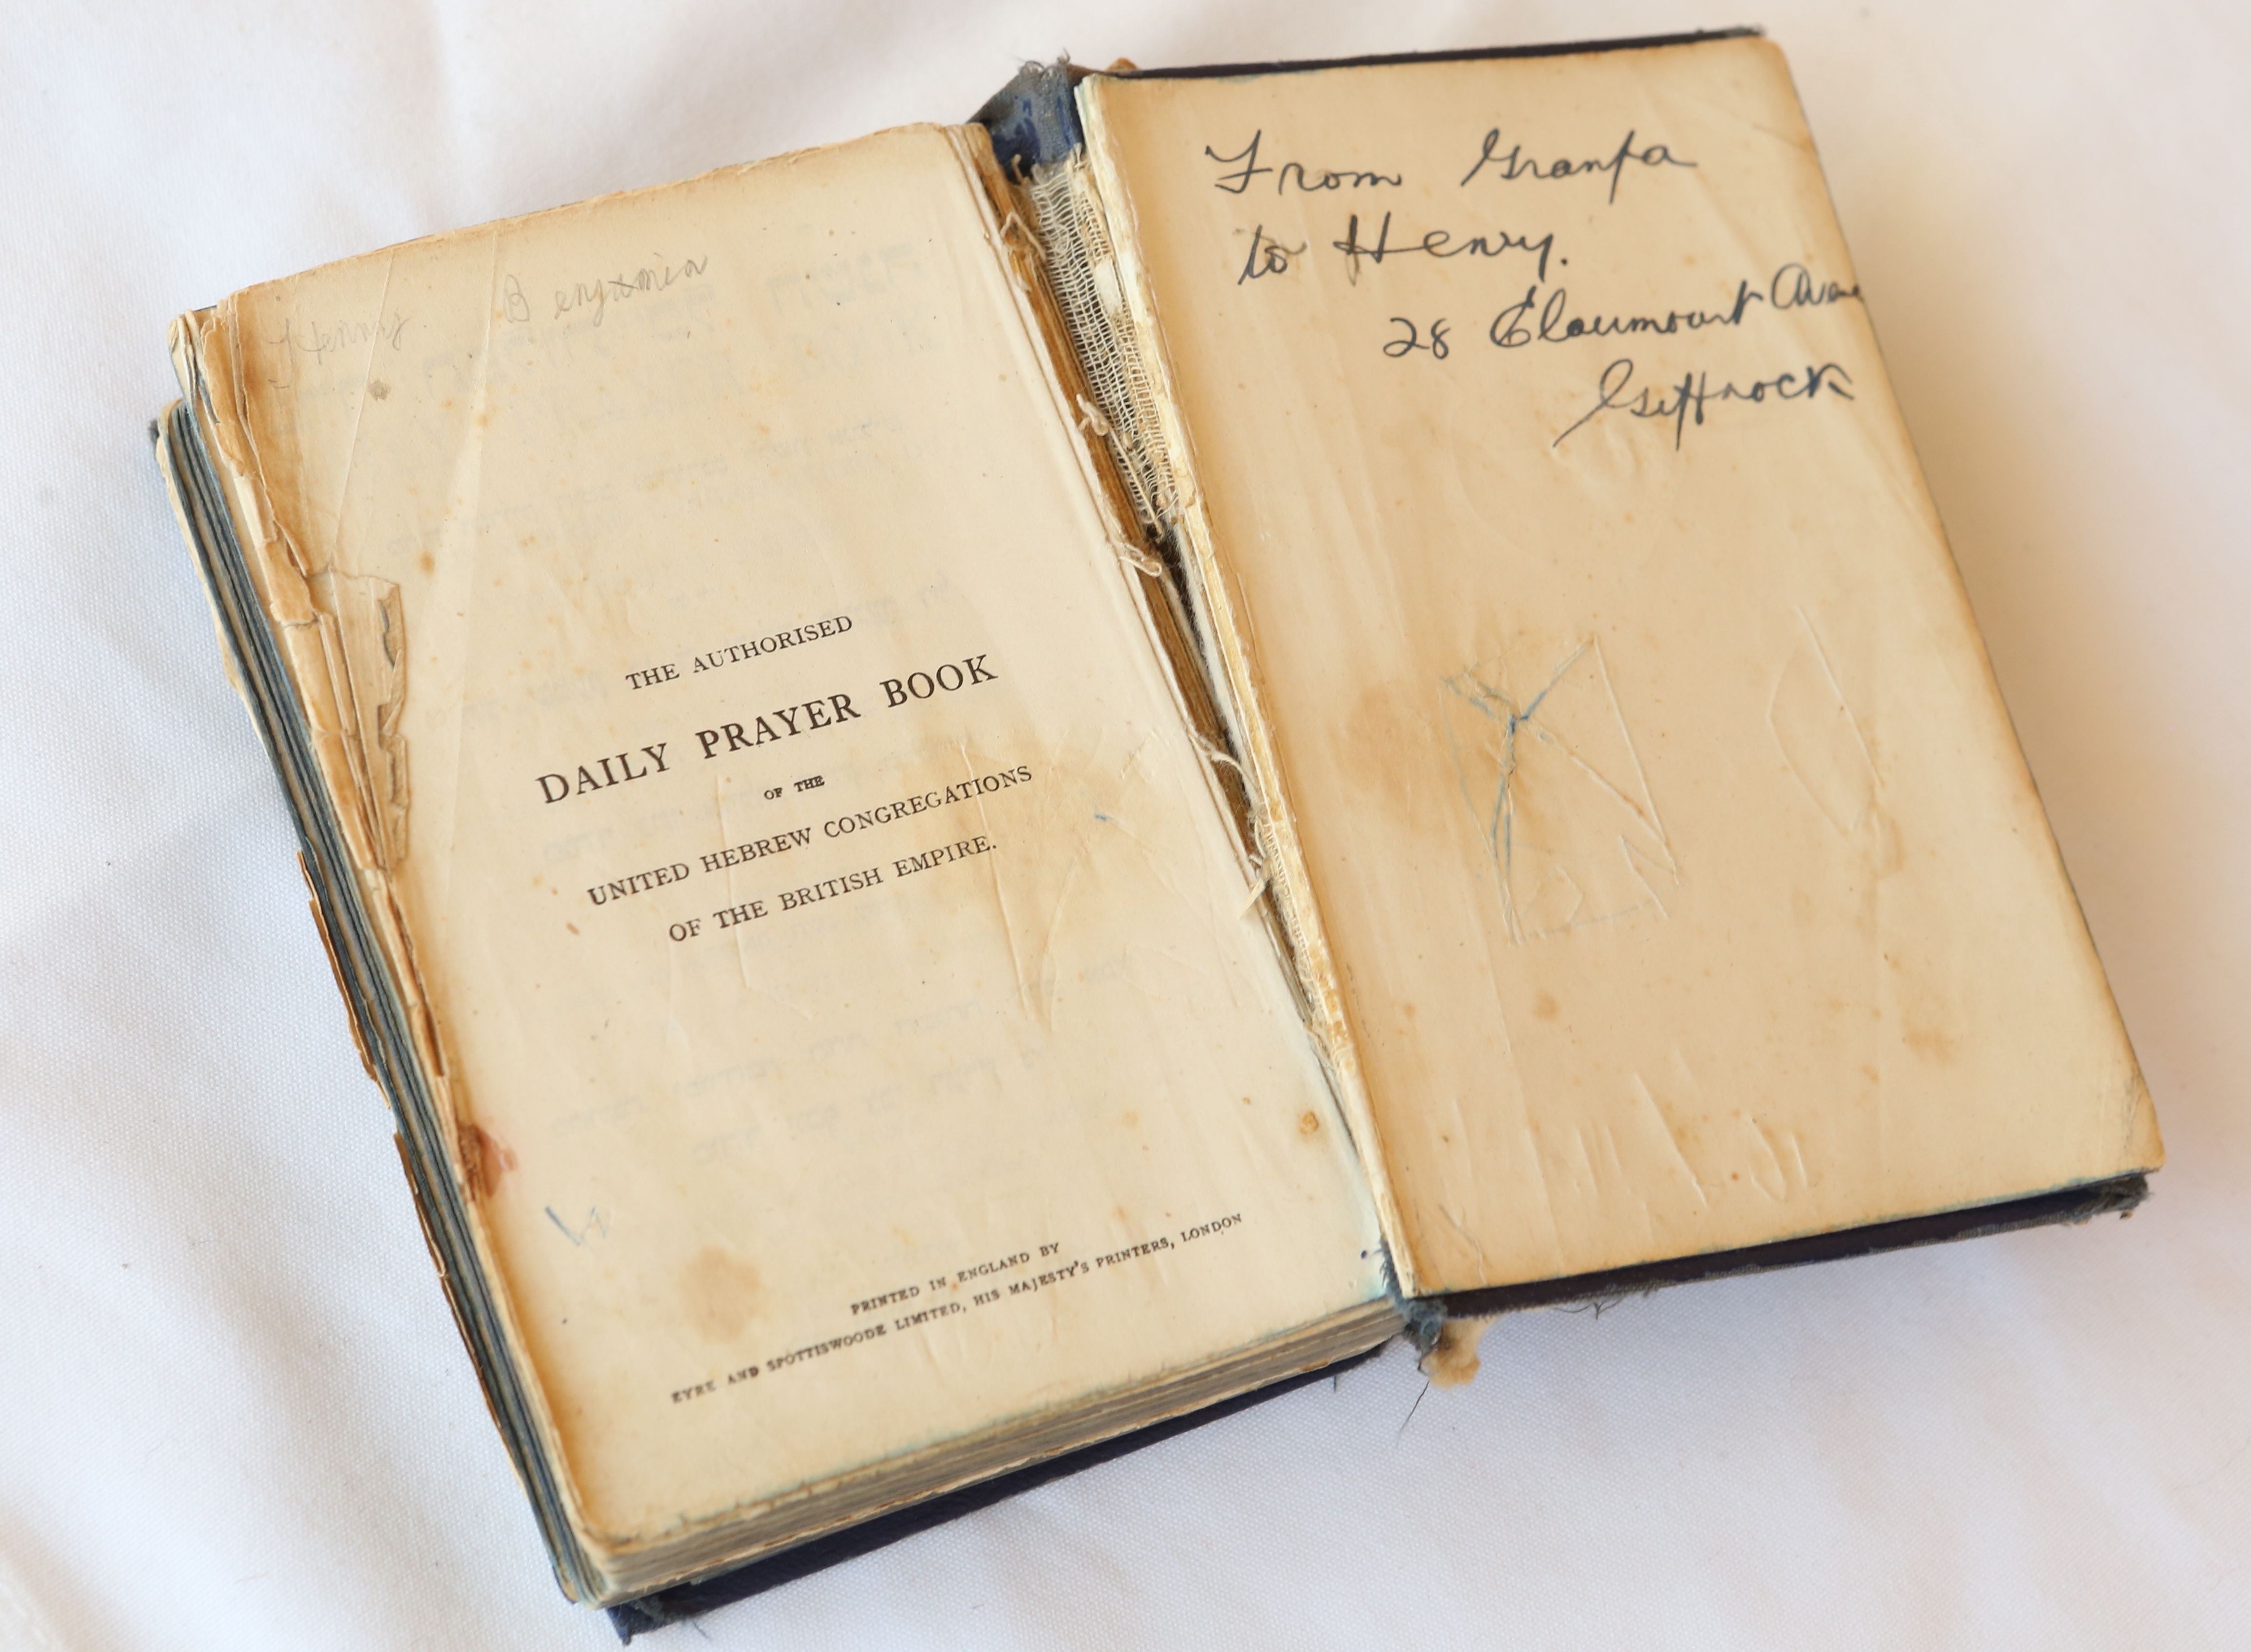 Henry Benjamin
THE AUTHORISED
DAILY PRAYER BOOK
OF THE
UNITED HEBREW CONGREGATIONS
OF THE BRITISH EMPIRE.
PRINTED IN ENGLAND BY
EYRE AND SPOTTISWOODE LIMITED, HIS MAJESTY'S PRINTERS, LONDON
From Granpa
to Henry.
28
Giffnock